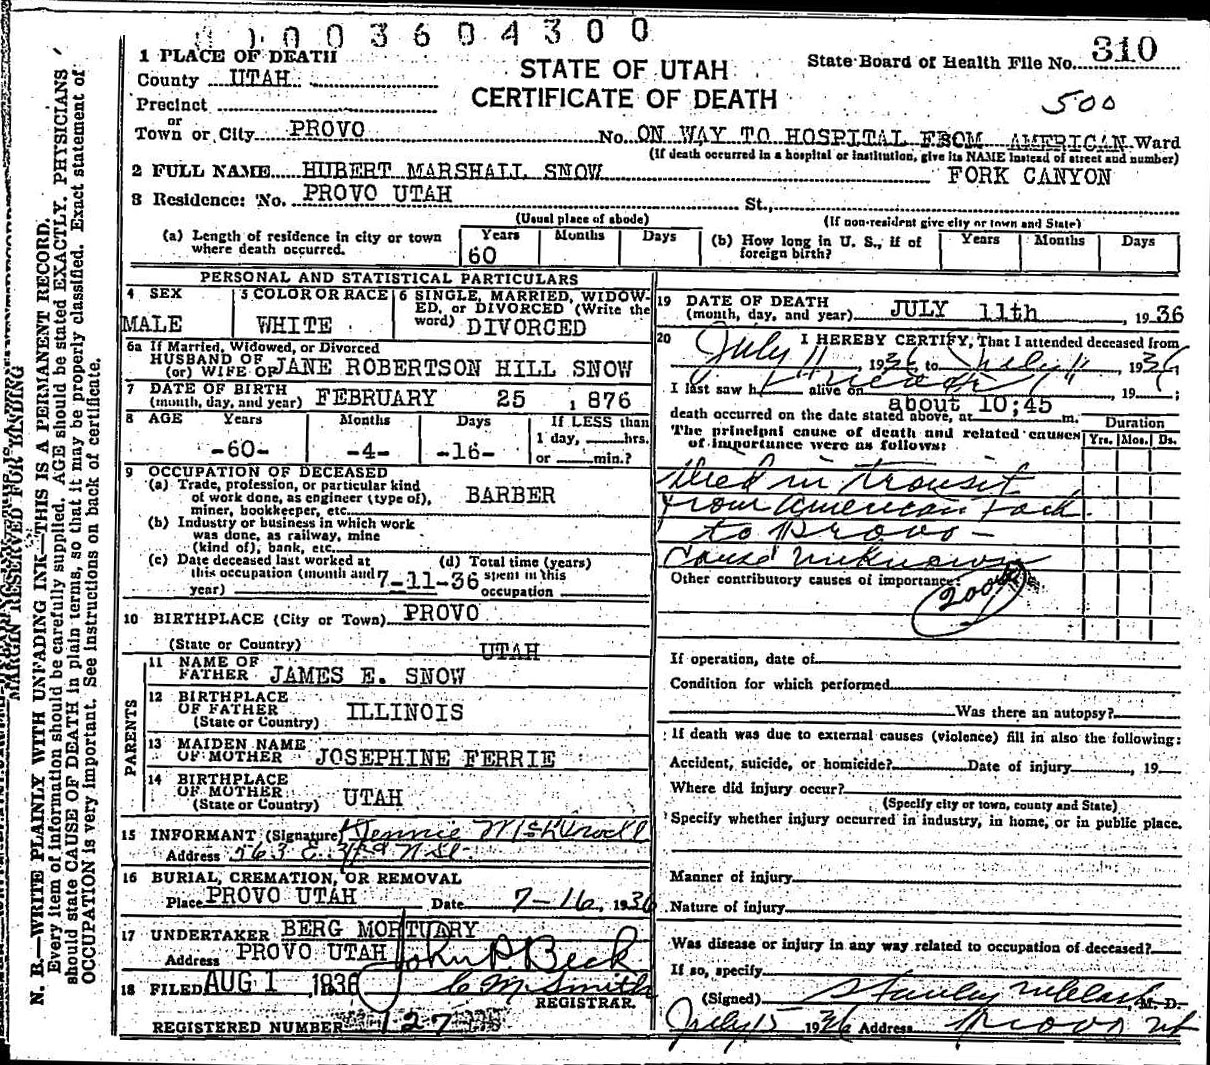 0003604300
1 PLACE OF DEATH
County UTAH
STATE OF UTAH
CERTIFICATE OF DEATH
State Board of Health File No. 310
500
Precinct
or
Town or City PROVO No. ON WAY TO HOSPITAL FROM AMERICAN Ward
(If death occurred in a hospital or institution, give its NAME instead of street and number)
2 FULL NAME HUBERT MARSHALL SNOW FORK CANYON
3 Residence: No. PROVO UTAH St.,
(Usual place of abode) (If non-resident give city or town and State)
(a) Length of residence in city or town where death occurred. Years 60 Months Days
(b) How long in U. S., if of foreign birth? Years Months Days
PERSONAL AND STATISTICAL PARTICULARS
4 SEX MALE
5 COLOR OR RACE WHITE
6 SINGLE, MARRIED, WIDOWED, or DIVORCED (Write the word) DIVORCED
6a If Married, Widowed, or Divorced
HUSBAND OF
(or) WIFE OF JANE ROBERTSON HILL SNOW
7 DATE OF BIRTH
(month, day, and year) FEBRUARY 25 , 876
8 AGE Years Months Days If LESS than
-60- -4- -16- 1 day, hrs.
or min.?
9 OCCUPATION OF DECEASED
(a) Trade, profession, or particular kind
of work done, as engineer (type of),
miner, bookkeeper, etc. BARBER
(b) Industry or business in which work
was done, as railway, mine
(kind of), bank, etc.
(c) Date deceased last worked at
this occupation (month and
year) 7-11-36
(d) Total time (years)
spent in this
occupation
10 BIRTHPLACE (City or Town) PROVO
(State or Country) UTAH
PARENTS
11 NAME OF
FATHER JAMES E. SNOW
12 BIRTHPLACE
OF FATHER
(State or Country) ILLINOIS
13 MAIDEN NAME
OF MOTHER JOSEPHINE FERRIE
14 BIRTHPLACE
OF MOTHER
(State or Country) UTAH
15 INFORMANT (Signature) Jennie
Address 563 E. 3rd N St.
16 BURIAL, CREMATION, OR REMOVAL
Place PROVO UTAH Date 7-16, 1936
17 UNDERTAKER BERG MORTUARY
Address PROVO UTAH John P Beck
18 FILED AUG 1 1936 C M Smith
REGISTRAR.
REGISTERED NUMBER 127
19 DATE OF DEATH
(month, day, and year) JULY 11th , 1936
20 I HEREBY CERTIFY, That I attended deceased from
July 11, 1936, to July 11, 1936
I last saw h alive on , 19 ;
death occurred on the date stated above, at about 10;45 m.
The principal cause of death and related causes
of importance were as follows:
Duration
Yrs. Mos. Ds.
Died in transit
from American Fork
to Provo -
Cause unknown
Other contributory causes of importance:
200
If operation, date of
Condition for which performed
Was there an autopsy?
If death was due to external causes (violence) fill in also the following:
Accident, suicide, or homicide? Date of injury , 19
Where did injury occur?
(Specify city or town, county and State)
Specify whether injury occurred in industry, in home, or in public place.
Manner of injury
Nature of injury
Was disease or injury in any way related to occupation of deceased?
If so, specify
(Signed) Stanley M. D.
July 15 1936 Address Provo Ut
MARGIN RESERVED FOR BINDING
N. B.—WRITE PLAINLY WITH UNFADING INK—THIS IS A PERMANENT RECORD.
Every item of information should be carefully supplied. AGE should be stated EXACTLY. PHYSICIANS
should state CAUSE OF DEATH in plain terms, so that it may be properly classified. Exact statement of
OCCUPATION is very important. See instructions on back of certificate.